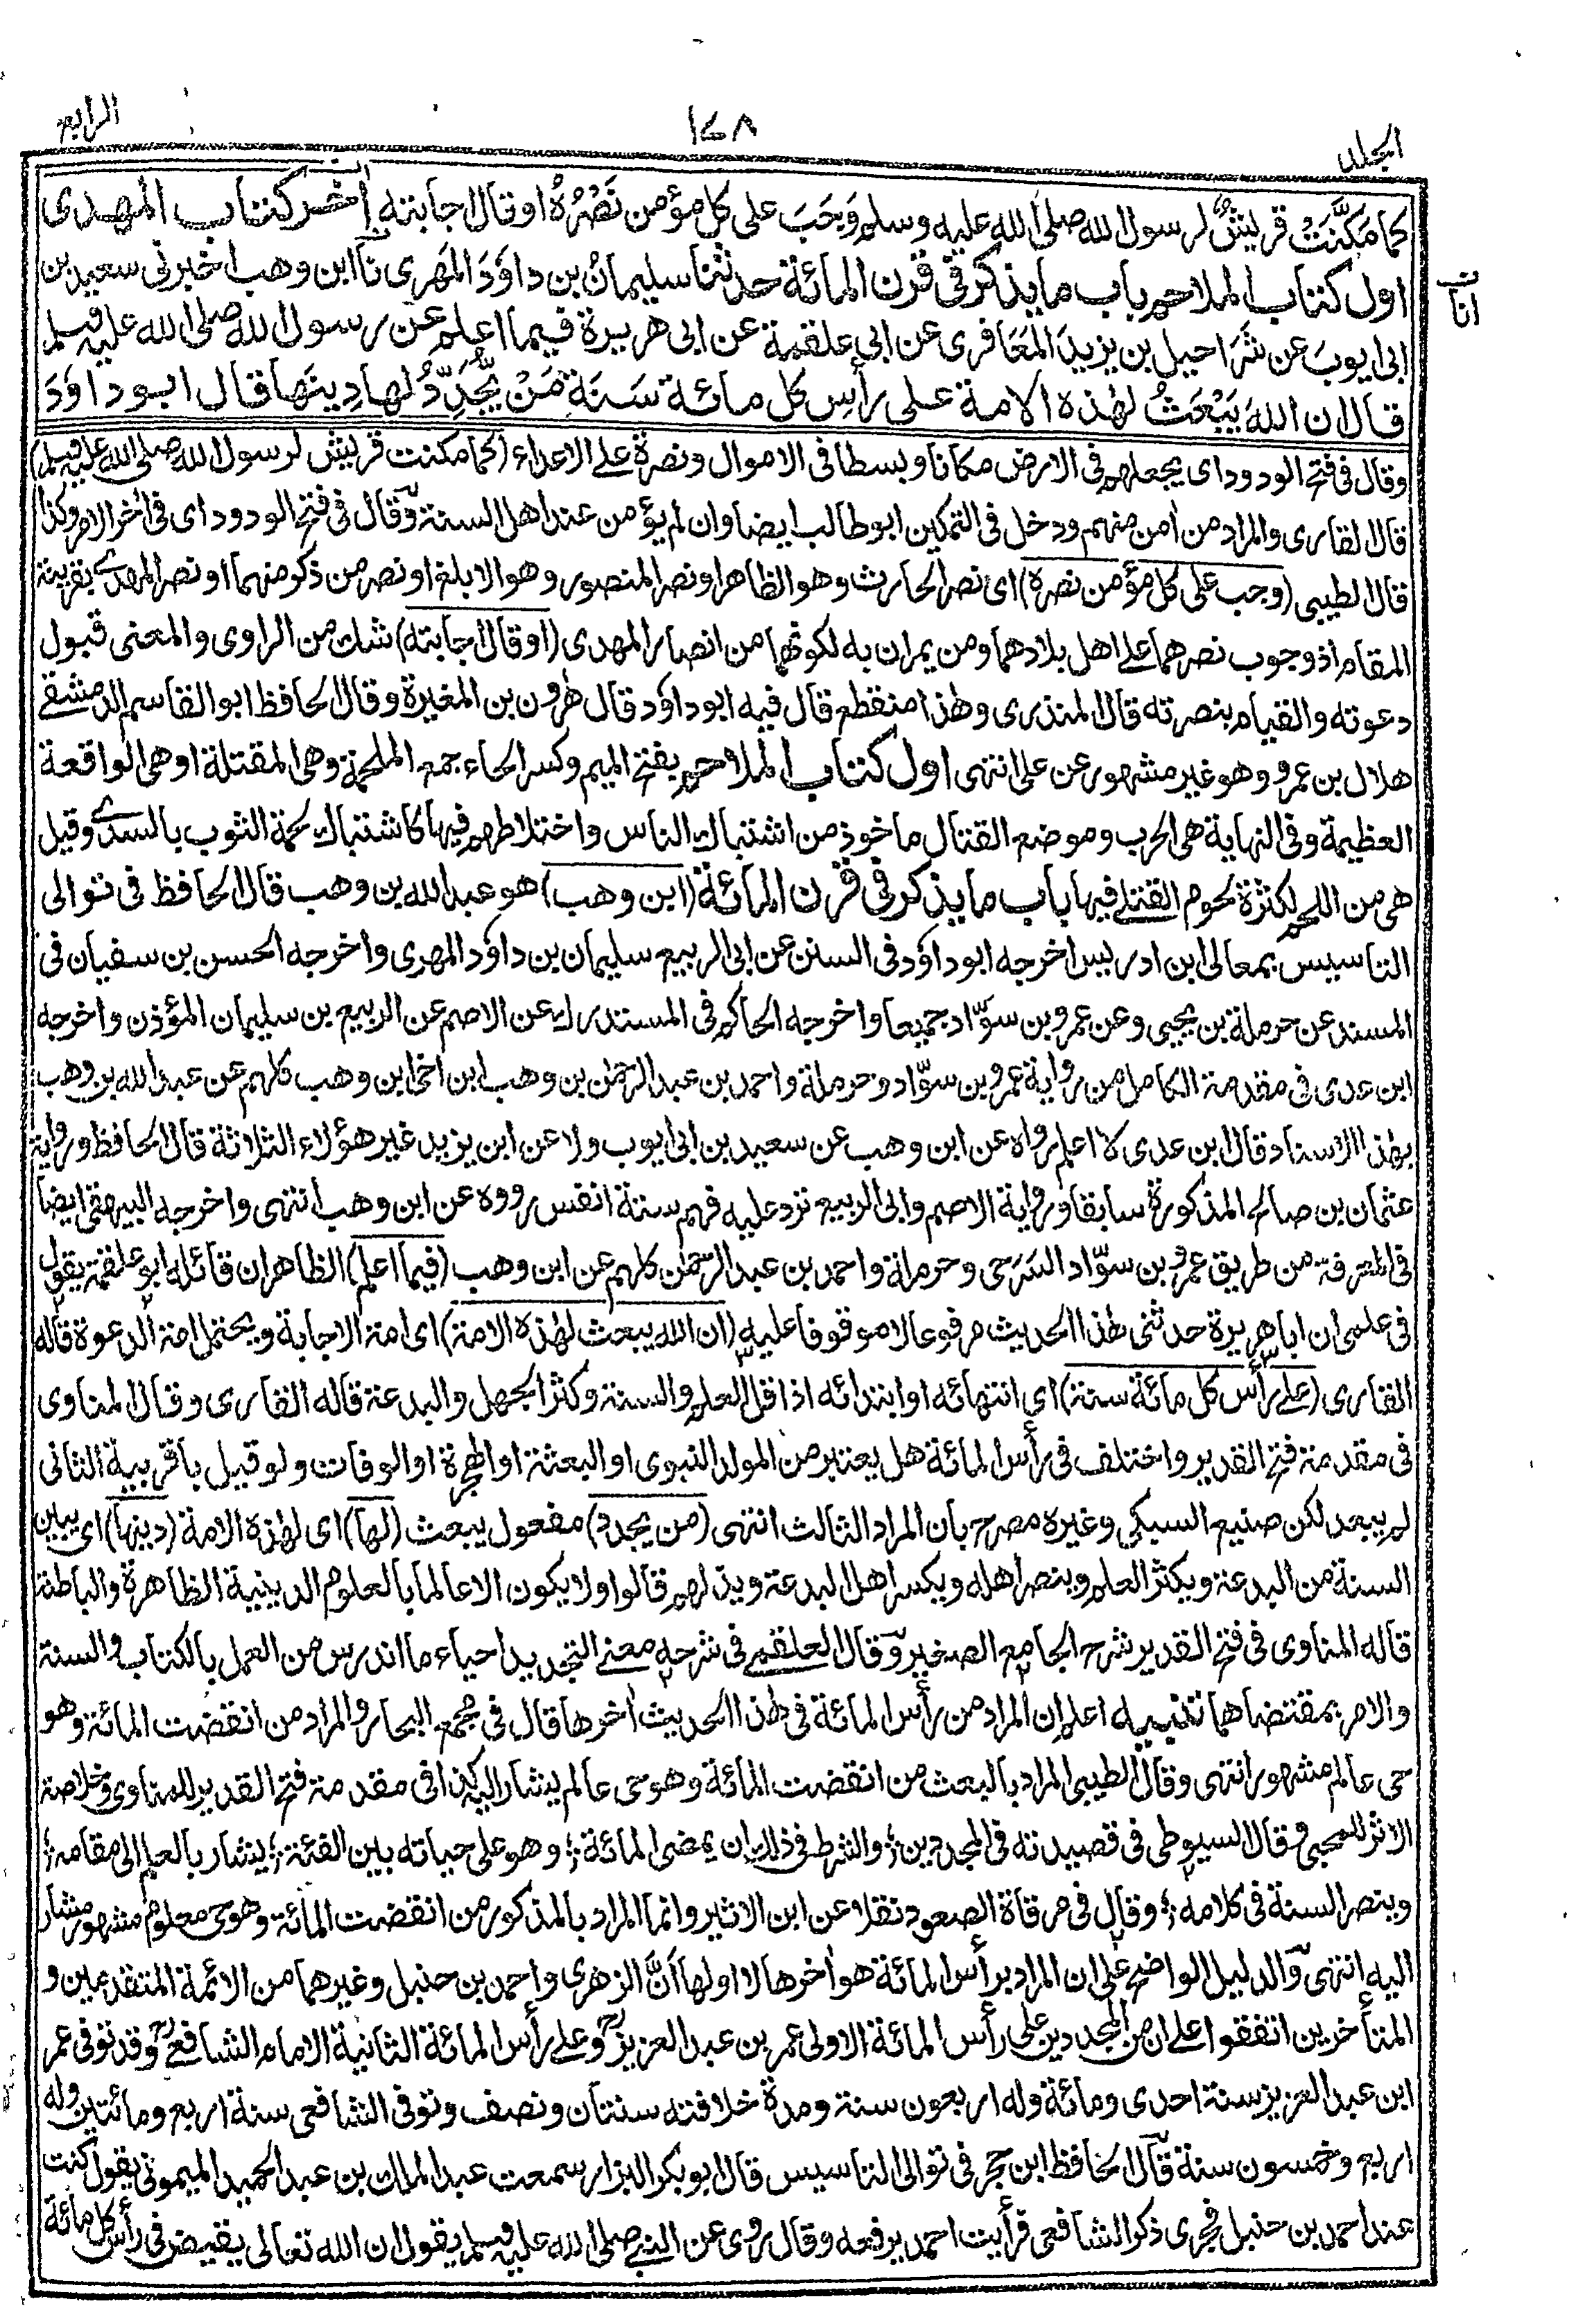 المجلد
١٧٨
الرابع
كما مَكَّنَتْ قريشٌ لرسول الله صلى الله عليه وسلم وَجَبَ على كل مؤمن نَصْرُهُ او قال اجابته اٰخر كتاب المهدى
اول كتاب الملاحم باب ما يذكر فى قرن المائة حدثنا سليمانُ بن داوٗدَ المَهرى نا ابن وهب اخبرنى سعيد بن
انا
ابى ايوبَ عن شَرَاحيل بن يزيدَ المَعَافرى عن ابى علقمة عن ابى هريرة فيما اعلم عن رسول الله صلى الله عليه وسلم
قال ان اللهَ يَبْعَثُ لهٰذه الامة على رأسِ كل مائة سَنَة مَنْ يُجَدِّدُ لها دِينَها قال ابو داوٗدَ
وقال فى فتح الودود اى يجعلهم فى الارض مكانا وبسطا فى الاموال ونصرة على الاعداء (كما مكنت قريش لرسول الله صلى الله عليه وسلم)
قال القارى والمراد من اٰمن منهم ودخل فى التمكين ابو طالب ايضا وان لم يؤمن عند اهل السنة وقال فى فتح الودود اى فى اٰخر الامر وكذا
قال الطيبى (وجب على كل مؤمن نصره) اى نصر الحارث وهو الظاهر او نصر المنصور وهو الابلغ او نصر من ذكر منهما او نصر المهدى بقرينة
المقام اذ وجوب نصرهما على اهل بلادهما ومن يمران به لكونهما من انصار المهدى (او قال اجابته) شك من الراوى والمعنى قبول
دعوته والقيام بنصرته قال المنذرى وهٰذا منقطع قال فيه ابو داوٗد قال هٰرون بن المغيرة وقال الحافظ ابو القاسم الدمشقى
هلال بن عمرو وهو غير مشهور عن على انتهى اول كتاب الملاحم بفتح الميم وكسر الحاء جمع الملحمة وهى المقتلة او هى الواقعة
العظيمة وفى النهاية هى الحرب وموضع القتال ماخوذ من اشتباك الناس واختلاطهم فيها كاشتباك لحمة الثوب بالسدى وقيل
هى من اللحم لكثرة لحوم القتلى فيها باب ما يذكر فى قرن المائة (ابن وهب) هو عبد الله بن وهب قال الحافظ فى توالى
التاسيس بمعالى ابن ادريس اخرجه ابو داوٗد فى السنن عن ابى الربيع سليمان بن داوٗد المهرى واخرجه الحسن بن سفيان فى
المسند عن حرملة بن يحيى وعن عمرو بن سوّاد جميعا واخرجه الحاكم فى المستدرك عن الاصم عن الربيع بن سليمان المؤذن واخرجه
ابن عدى فى مقدمة الكامل من رواية عمرو بن سوّاد وحرملة واحمد بن عبد الرحمٰن بن وهب ابن اخى ابن وهب كلهم عن عبد الله بن وهب
بهٰذا الاسناد قال ابن عدى لا اعلم رواه عن ابن وهب عن سعيد بن ابى ايوب ولا عن ابن يزيد غير هؤلاء الثلاثة قال الحافظ ورواية
عثمان بن صالح المذكورة سابقا ورواية الاصم وابى الربيع ترد عليه فهم ستة انفس رووه عن ابن وهب انتهى واخرجه البيهقى ايضا
فى المعرفة من طريق عمرو بن سوّاد السَرحى وحرملة واحمد بن عبد الرحمٰن كلهم عن ابن وهب (فيما اعلم) الظاهر ان قائله ابو علقمة يقول
فى علمى ان ابا هريرة حدثنى هٰذا الحديث مرفوعا لا موقوفا عليه (ان الله يبعث لهٰذه الامة) اى امة الاجابة ويحتمل امة الدعوة قاله
القارى (على رأس كل مائة سنة) اى انتهائه او ابتدائه اذا قل العلم والسنة وكثر الجهل والبدعة قاله القارى وقال المناوى
فى مقدمة فتح القدير واختلف فى رأس المائة هل يعتبر من المولد النبوى او البعثة او الهجرة او الوفات ولو قيل باقربية الثانى
لم يبعد لكن صنيع السبكى وغيره مصرح بان المراد الثالث انتهى (من يجدد) مفعول يبعث (لها) اى لهٰذه الامة (دينها) اى يبين
السنة من البدعة ويكثر العلم وينصر اهله ويكسر اهل البدعة ويذلهم قالوا ولا يكون الا عالما بالعلوم الدينية الظاهرة والباطنة
قاله المناوى فى فتح القدير شرح الجامع الصغير وقال العلقمى فى شرحه معنى التجديد احياء ما اندرس من العمل بالكتاب والسنة
والامر بمقتضاهما تنبيه اعلم ان المراد من رأس المائة فى هٰذا الحديث اٰخرها قال فى مجمع البحار والمراد من انقضت المائة وهو
حى عالم مشهور انتهى وقال الطيبى المراد بالبعث من انقضت المائة وهو حى عالم يشار اليه كذا فى مقدمة فتح القدير للمناوى وخلاصة
الاثر للمحبى وقال السيوطى فى قصيدته فى المجددين؛ والشرط فى ذلك ان يمضى المائة؛ وهو على حياته بين الفئة؛ يشار بالعلم الى مقامه؛
وينصر السنة فى كلامه؛ وقال فى مرقاة الصعود نقلا عن ابن الاثير وانما المراد بالمذكور من انقضت المائة وهو حى معلوم مشهور مشار
اليه انتهى والدليل الواضح على ان المراد برأس المائة هو اٰخرها لا اولها اَنَّ الزهرى واحمد بن حنبل وغيرهما من الائمة المتقدمين و
المتأخرين اتفقوا على ان من المجددين على رأس المائة الاولى عمر بن عبد العزيز وعلى رأس المائة الثانية الامام الشافعى وقد توفى عمر
ابن عبد العزيز سنة احدى ومائة وله اربعون سنة ومدة خلافته سنتان ونصف وتوفى الشافعى سنة اربع ومائتين وله
اربع وخمسون سنة قال الحافظ ابن حجر فى توالى التاسيس قال ابو بكر البزار سمعت عبد الملك بن عبد الحميد الميمونى يقول كنت
عند احمد بن حنبل فجرى ذكر الشافعى فرأيت احمد يرفعه وقال روى عن النبى صلى الله عليه وسلم يقول ان الله تعالى يقيض فى رأس كل مائة